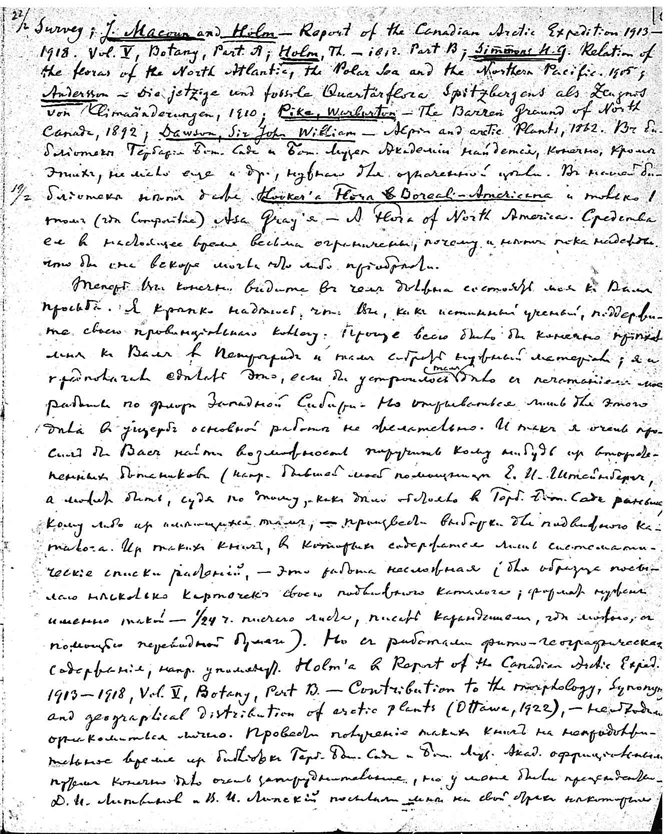 22/2 Survey; J. Macoun and Holm — Report of the Canadian Arctic Expedition 1913—
1918. Vol. V, Botany, Part A; Holm, Th. — ibid. Part B; Simmons H.G. Relation of
the floras of the North Atlantic, the Polar Sea and the Northern Pacific.
Andersson — Die jetzige und fossile Quartärflora Spitzbergens als Zeugnis
von Klimaänderungen, 1910; Pike, Warburton — The Barren Ground of North
Canada, 1892; Dawson, Sir John William — Alpin and arctic Plants, Въ би-
блiотекѣ Гербарiя Бот. Сада и Бот. Музея Академiи найдется, конечно, кромѣ
этихъ, не мало еще и др., нужныхъ для означенной цѣли. Въ нашей би-
19/2 блiотекѣ нѣтъ даже Hooker'a Flora Boreali-Americana и только 1
томъ (гдѣ Compositae) Asa Gray'я — A Flora of North America. Средства
ея въ настоящее время весьма ограничены, почему и нѣтъ пока надежды,
что бы она вскорѣ могла что либо прiобрѣсти.
Теперь Вы конечно видите въ чемъ должна состоять моя къ Вамъ
просьба. Я крѣпко надѣюсь, что Вы, какъ истинный ученый, поддержи-
те своего провинцiальнаго коллегу. Проще всего было бы конечно
мнѣ къ Вамъ въ Петроградъ и тамъ собрать нужный матерiалъ; я и
сдѣлать это, если бы устроилось тамъ дѣло съ печатанiемъ моей
работы по флорѣ Западной Сибири. Но отрываться лишь для этого
дѣла въ ущербъ основной работѣ не желательно. И такъ я очень про-
силъ бы Васъ найти возможность поручить кому нибудь изъ второсте-
пенныхъ ботаниковъ (напр. бывшей моей помощницѣ Е. И. Штейнбергъ,
а можетъ быть, судя по тому, какъ дѣло обстояло въ Герб. Бот. Сада раньше,
кому либо изъ имѣющихся тамъ, — произвести выборки для подвижного ка-
талога. Изъ такихъ книгъ, въ которыхъ содержатся лишь систематиче-
ческiе списки растенiй, — это работа несложная (для образца посы-
лаю нѣсколько карточекъ своего подвижного каталога; форматъ нуженъ
именно такой — 1/24 ч. писчего листа, писать карандашемъ, гдѣ можно, съ
помощью переводной бумаги). Но съ работами фито-географическаго
содержанiя, напр. упомянут. Holm'a въ Report of the Canadian Arctic Exped.
1913—1918, Vol. V, Botany, Part B. — Contribution to the morphology, Synonymy
and geographical distribution of arctic plants (Ottawa, 1922), — необходимо
ознакомиться лично. Провести полученiе такихъ книгъ на непродолжи-
тельное время изъ библiотеки Герб. Бот. Сада и Бот. Муз. Акад. оффицiальнымъ
путемъ конечно дѣло очень затруднительное, но у меня были прецеденты.
Д. И. Литвиновъ и В. И. Липскiй посылали мнѣ на свой страхъ нѣкоторые